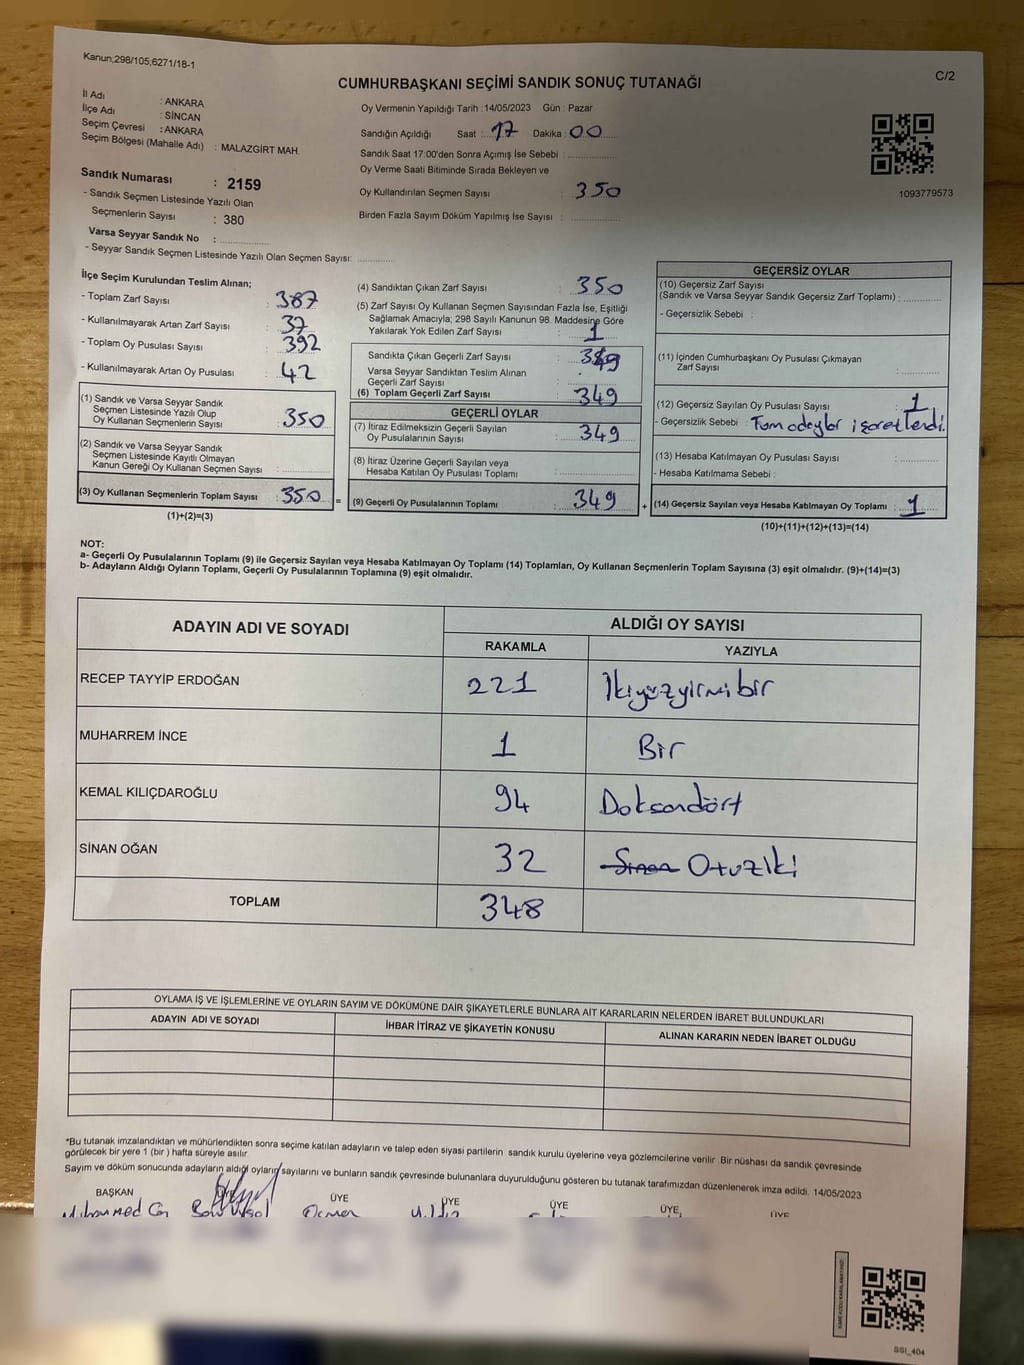 Kanun;298/105;6271/18-1
C/2
CUMHURBAŞKANI SEÇİMİ SANDIK SONUÇ TUTANAĞI
İl Adı : ANKARA
İlçe Adı : SİNCAN
Seçim Çevresi : ANKARA
Seçim Bölgesi (Mahalle Adı) : MALAZGİRT MAH.
Sandık Numarası : 2159
- Sandık Seçmen Listesinde Yazılı Olan
Seçmenlerin Sayısı : 380
Varsa Seyyar Sandık No :
- Seyyar Sandık Seçmen Listesinde Yazılı Olan Seçmen Sayısı:
Oy Vermenin Yapıldığı Tarih : 14/05/2023 Gün : Pazar
Sandığın Açıldığı Saat : 17 Dakika : 00
Sandık Saat 17:00'den Sonra Açımış İse Sebebi :
Oy Verme Saati Bitiminde Sırada Bekleyen ve
Oy Kullandırılan Seçmen Sayısı : 350
Birden Fazla Sayım Döküm Yapılmış İse Sayısı :
1093779573
İlçe Seçim Kurulundan Teslim Alınan;
- Toplam Zarf Sayısı : 387
- Kullanılmayarak Artan Zarf Sayısı : 37
- Toplom Oy Pusulası Sayısı : 392
- Kullanılmayarak Artan Oy Pusulası : 42
(1) Sandık ve Varsa Seyyar Sandık
Seçmen Listesinde Yazılı Olup
Oy Kullanan Seçmenlerin Sayısı : 350
(2) Sandık ve Varsa Seyyar Sandık
Seçmen Listesinde Kayıtlı Olmayan
Kanun Gereği Oy Kullanan Seçmen Sayısı :
(3) Oy Kullanan Seçmenlerin Toplam Sayısı : 350 =
(1)+(2)=(3)
(4) Sandıktan Çıkan Zarf Sayısı : 350
(5) Zarf Sayısı Oy Kullanan Seçmen Sayısından Fazla İse, Eşitliği
Sağlamak Amacıyla; 298 Sayılı Kanunun 98. Maddesine Göre
Yakılarak Yok Edilen Zarf Sayısı : 1
Sandıkta Çıkan Geçerli Zarf Sayısı : 349
Varsa Seyyar Sandıktan Teslim Alınan
Geçerli Zarf Sayısı :
(6) Toplam Geçerli Zarf Sayısı : 349
GEÇERLİ OYLAR
(7) İtiraz Edilmeksizin Geçerli Sayılan
Oy Pusulalarının Sayısı : 349
(8) İtiraz Üzerine Geçerli Sayılan veya
Hesaba Katılan Oy Pusulası Toplamı :
(9) Geçerli Oy Pusulalarının Toplamı : 349 +
GEÇERSİZ OYLAR
(10) Geçersiz Zarf Sayısı
(Sandık ve Varsa Seyyar Sandık Geçersiz Zarf Toplamı) :
- Geçersizlik Sebebi :
(11) İçinden Cumhurbaşkanı Oy Pusulası Çıkmayan
Zarf Sayısı :
(12) Geçersiz Sayılan Oy Pusulası Sayısı : 1
- Geçersizlik Sebebi : Tüm adaylar işaretlendi.
(13) Hesaba Katılmayan Oy Pusulası Sayısı :
- Hesaba Katılmama Sebebi :
(14) Geçersiz Sayılan veya Hesaba Katılmayan Oy Toplamı : 1
(10)+(11)+(12)+(13)=(14)
NOT:
a- Geçerli Oy Pusulalarının Toplamı (9) ile Geçersiz Sayılan veya Hesaba Katılmayan Oy Toplamı (14) Toplamları, Oy Kullanan Seçmenlerin Toplam Sayısına (3) eşit olmalıdır. (9)+(14)=(3)
b- Adayların Aldığı Oyların Toplamı, Geçerli Oy Pusulalarının Toplamına (9) eşit olmalıdır.
ADAYIN ADI VE SOYADI ALDIĞI OY SAYISI
RAKAMLA YAZIYLA
RECEP TAYYİP ERDOĞAN 221 İkiyüzyirmibir
MUHARREM İNCE 1 Bir
KEMAL KILIÇDAROĞLU 94 Doksandört
SİNAN OĞAN 32 Sinan Otuziki
TOPLAM 348
OYLAMA İŞ VE İŞLEMLERİNE VE OYLARIN SAYIM VE DÖKÜMÜNE DAİR ŞİKAYETLERLE BUNLARA AİT KARARLARIN NELERDEN İBARET BULUNDUKLARI
ADAYIN ADI VE SOYADI İHBAR İTİRAZ VE ŞİKAYETİN KONUSU ALINAN KARARIN NEDEN İBARET OLDUĞU
*Bu tutanak imzalandıktan ve mühürlendikten sonra seçime katılan adayların ve talep eden siyasi partilerin sandık kurulu üyelerine veya gözlemcilerine verilir. Bir nüshası da sandık çevresinde
görülecek bir yere 1 (bir ) hafta süreyle asılır.
Sayım ve döküm sonucunda adayların aldığı oyların sayılarını ve bunların sandık çevresinde bulunanlara duyurulduğunu gösteren bu tutanak tarafımızdan düzenlenerek imza edildi. 14/05/2023
BAŞKAN ÜYE ÜYE ÜYE ÜYE ÜYE ÜYE
SSI_404